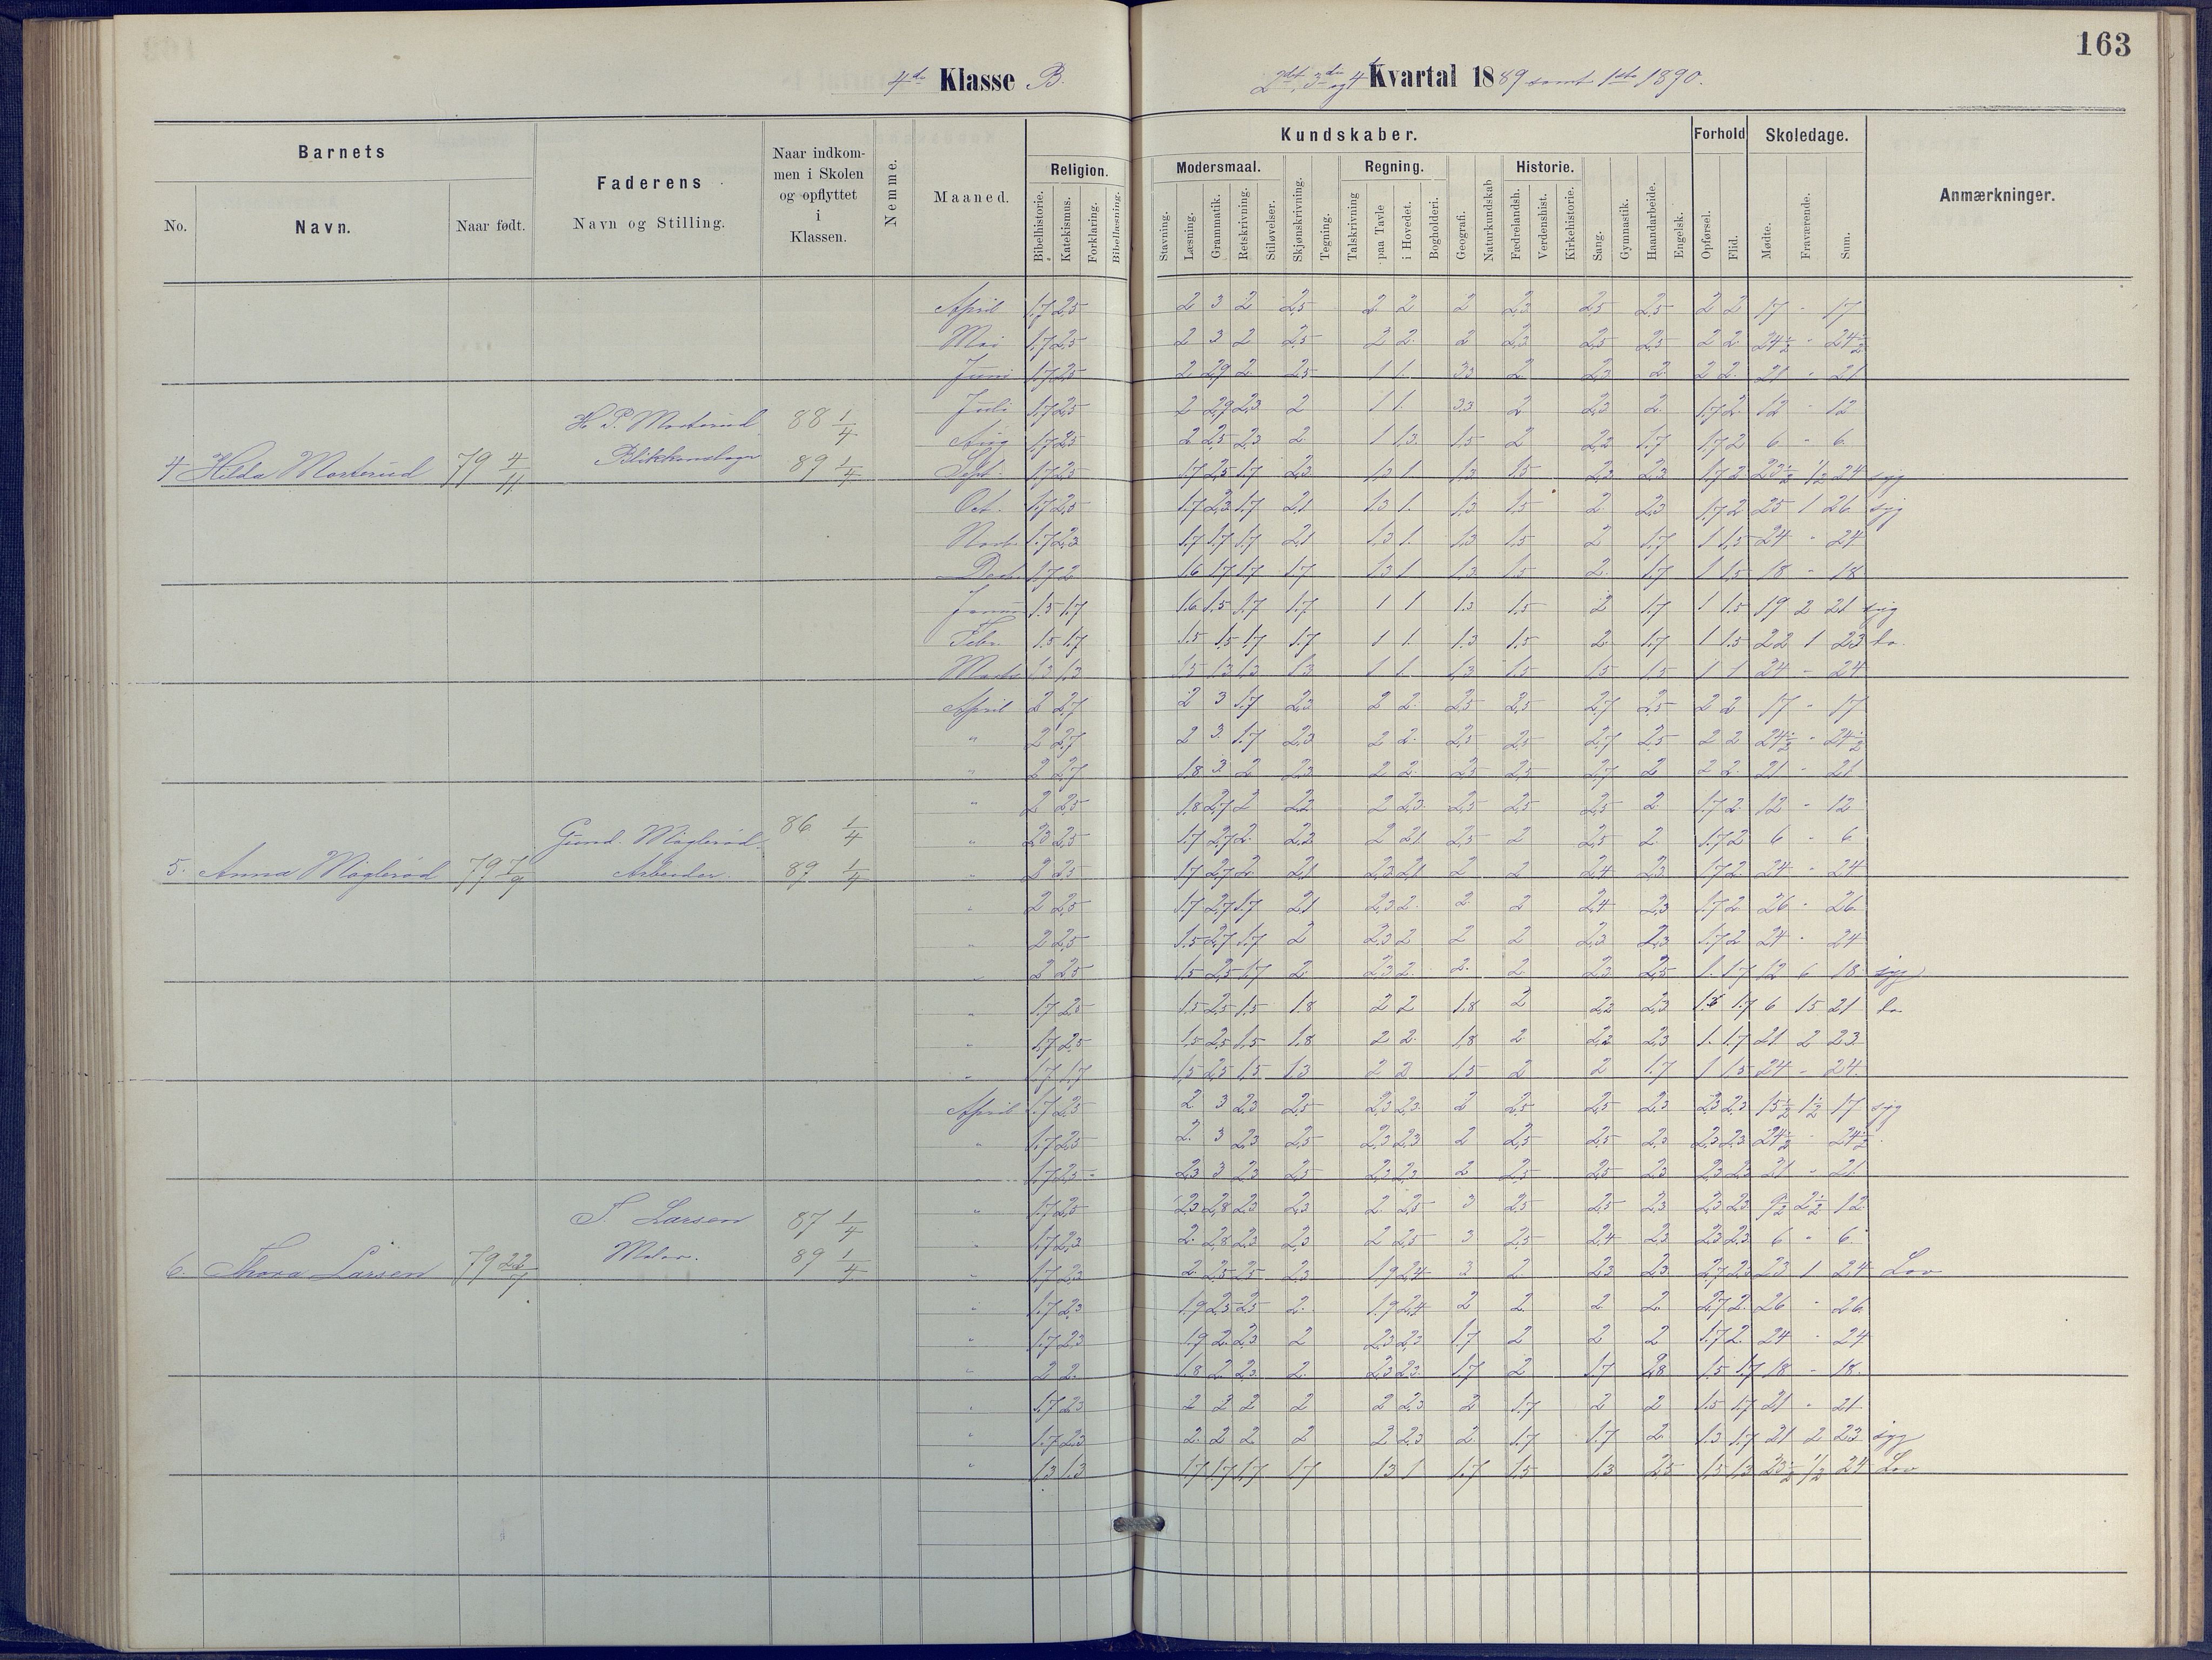 163
4de Klasse B.
2det, 3die og 4de Kvartal 1889 samt 1ste 1890.
Barnets
No.
Navn.
Naar født.
Faderens
Navn og Stilling.
Naar indkom-
men i Skolen
og opflyttet
i
Klassen.
Nemme.
Maaned.
Kundskaber.
Religion.
Bibelhistorie.
Katekismus.
Forklaring.
Bibellæsning.
Modersmaal.
Stavning.
Læsning.
Grammatik.
Retskrivning.
Stiløvelser.
Skjønskrivning.
Tegning.
Regning.
Talskrivning
paa Tavle
i Hovedet.
Bogholderi.
Geografi.
Naturkundskab
Historie.
Fædrelandsh.
Verdenshist.
Kirkehistorie.
Sang.
Gymnastik.
Haandarbeide.
Engelsk.
Forhold
Opførsel.
Flid.
Skoledage.
Mødte.
Fraværende.
Sum.
Anmærkninger.
April 1.7 2.5 2 3 2 2.5 2 2 2 2.3 2.5 2.5 2 2 17 - 17
Mai 1.7 2.5 2 3 2 2.5 2 2 2 2.3 2.5 2.5 2 2 24½ - 24½
Juni 1.7 2.5 2 2.9 2 2.5 1 1 3.3 2 2.3 2 2 2 21 - 21
Juli 1.7 2.5 2 2.9 2.3 2 1 1 3.3 2 2.3 2 1.7 2 12 - 12
H. P. 88 1/4
Aug 1.7 2.5 2 2.5 2.3 2 1 1.3 1.5 2 2.2 1.7 1.7 2 6 - 6
4 Hilda 79 4/11 89 1/4
Sept. 1.7 2.5 1.7 2.5 1.7 2.3 1.3 1 1.3 1.5 2.3 2.3 1.7 2 23½ ½ 24 syg
Oct. 1.7 2.5 1.7 2.3 1.7 2.1 1.3 1 1.3 1.5 2 2.3 1.7 2 25 1 26 syg
1.7 2.3 1.7 1.7 1.7 2.1 1.3 1 1.3 1.5 2 1.7 1 1.5 24 - 24
1.7 2 1.6 1.7 1.7 1.7 1.3 1 1.3 1.5 2 1.7 1 1.5 18 - 18
1.5 1.7 1.6 1.5 1.7 1.7 1 1 1.3 1.5 2 1.7 1 1.5 19 2 21 syg
Febr. 1.5 1.7 1.5 1.5 1.7 1.7 1 1 1.3 1.5 2 1.7 1 1.5 22 1 23 do.
Marts 1.3 1.3 1.5 1.3 1.3 1.3 1 1 1.3 1.5 1.5 1.5 1 1 24 - 24
April 2 2.7 2 3 1.7 2.3 2 2 2.5 2.5 2.7 2.5 2 2 17 - 17
" 2 2.7 2 3 1.7 2.3 2 2 2.5 2.5 2.7 2.5 2 2 24½ - 24½
" 2 2.7 1.8 3 2 2.3 2 2 2.5 2.5 2.7 2 2 2 21 - 21
" 2 2.5 1.8 2.7 2 2.2 2 2.3 2.5 2.5 2.5 2 1.7 2 12 - 12
Gund. Møglerød 86 1/4
" 2.3 2.5 1.7 2.7 2 2.2 2 2.1 2.5 2 2.5 2 1.7 2 6 - 6
5. Anna Møglerød 79 7/9 Arbeider. 89 1/4
" 2 2.5 1.7 2.7 2 2.1 2.3 2.1 2 2 2.4 2.3 1.7 2 24 - 24
" 2 2.5 1.7 2.7 1.7 2.1 2.3 2 2 2 2.4 2.3 1.7 2 26 - 26
" 2 2.5 1.5 2.7 1.7 2 2.3 2 2 2 2.3 2.3 1.7 2 24 - 24
" 2 2.5 1.5 2.5 1.7 2 2.3 2 2 2 2.3 2.5 1 1.7 12 6 18 syg
" 1.7 2.5 1.5 2.5 1.5 1.8 2 2 1.8 2 2.2 2.3 1.7 6 15 21 do
" 1.7 2.5 1.5 2.5 1.5 1.8 2 2 1.8 2 2.2 2.3 1 1.7 21 2 23
" 1.7 1.7 1.5 2.5 1.5 1.3 2 2 1.5 2 2 1.7 1 1.5 24 - 24
April 1.7 2.5 2 3 2.3 2.5 2.3 2.3 2 2.5 2.5 2.3 2.3 2.3 15½ 1½ 17 syg
" 1.7 2.5 2 3 2.3 2.5 2.3 2.3 2 2.5 2.5 2.3 2.3 2.3 24½ - 24½
" 1.7 2.5 2.3 3 2.3 2.5 2.3 2.3 2 2.5 2.5 2.3 2.3 2.3 21 - 21
" 1.7 2.5 2.3 2.8 2.3 2.3 2 2.5 3 2.5 2.5 2.3 2.3 2.3 9½ 2½ 12
Larsen 87 1/4
" 1.7 2.3 2 2.8 2.3 2.3 2 2.5 3 2.5 2.4 2.3 2.3 2.3 6 - 6
6. Thora Larsen 79 22/7 Maler. 89 1/4
" 1.7 2.3 2 2.5 2.5 2.3 1.9 2.4 3 2 2.3 2.3 2.7 2.3 23 1 24 Lov
" 1.7 2.3 1.9 2.5 2.5 2 1.9 2.4 2 2 2 2 2.7 2 26 - 26
" 1.7 2.3 1.9 2 2.3 2 2.3 2.3 1.7 2 2 2 1.7 2 24 - 24
" 2 2 1.8 2 2.3 2 2.3 2.3 1.7 2 1.7 2.8 1.5 1.7 18 - 18
" 1.7 2.3 2 2 2 2 2 2.3 2 1.7 2 2 1.5 1.7 21 - 21
" 1.7 2.3 2 2 2 2 2 2.3 2 1.7 1.7 2 1.3 1.7 21 2 23 syg
" 1.3 1.3 1.7 1.7 1.7 1.7 1.3 1 1.7 1.5 1.3 2.5 1.5 1.3 23½ ½ 24 Lov